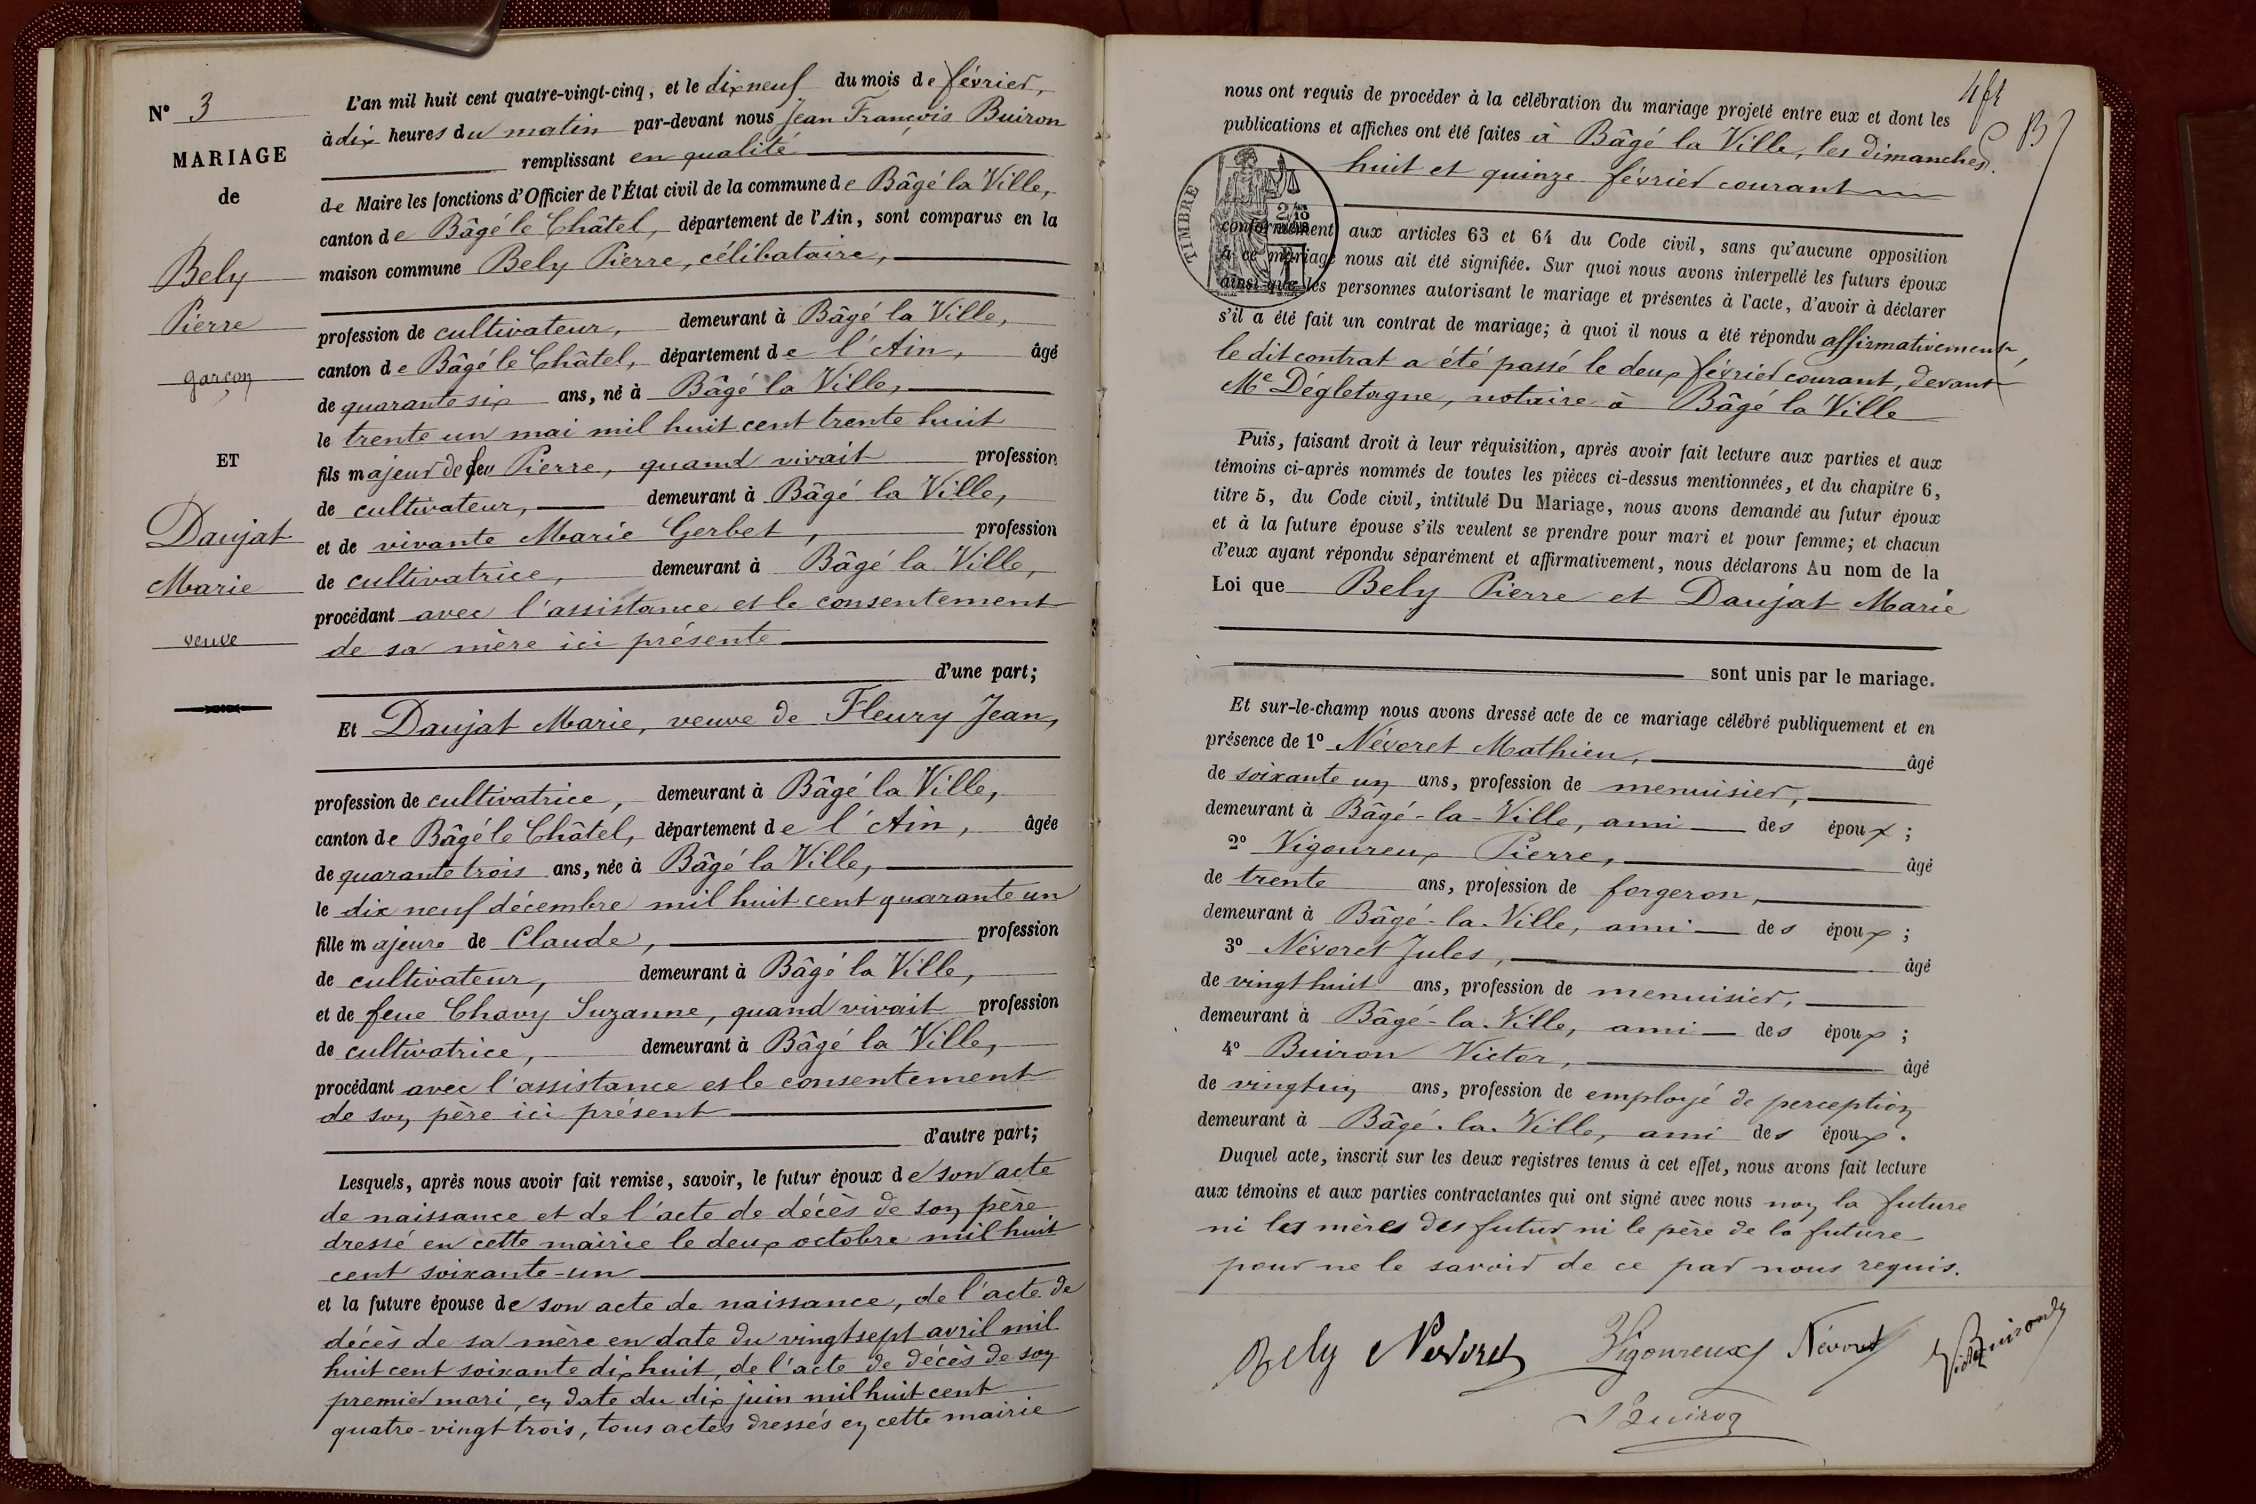 N° 3
MARIAGE
de
Bely
Pierre
garçon
ET
Daujat
Marie
veuve
L'an mil huit cent quatre-vingt-cinq, et le dix neuf du mois de février,
à dix heures du matin par-devant nous Jean François Buiron
remplissant en qualité
de Maire les fonctions d'Officier de l'État civil de la commune de Bâgé la Ville,
canton de Bâgé le Châtel, département de l'Ain, sont comparus en la
maison commune Bely Pierre, célibataire,
profession de cultivateur, demeurant à Bâgé la Ville,
canton de Bâgé le Châtel, département de l'Ain, âgé
de quarante six ans, né à Bâgé la Ville,
le trente un mai mil huit cent trente huit
fils majeur de feu Pierre, quand vivait profession
de cultivateur, demeurant à Bâgé la Ville,
et de vivante Marie Gerbet, profession
de cultivatrice, demeurant à Bâgé la Ville,
procédant avec l'assistance et le consentement
de sa mère ici présente
d'une part;
Et Daujat Marie, veuve de Fleury Jean,
profession de cultivatrice, demeurant à Bâgé la Ville,
canton de Bâgé le Châtel, département de l'Ain, âgée
de quarante trois ans, née à Bâgé la Ville,
le dix neuf décembre mil huit cent quarante un
fille majeure de Claude, profession
de cultivateur, demeurant à Bâgé la Ville,
et de feue Chavy Suzanne, quand vivait profession
de cultivatrice, demeurant à Bâgé la Ville,
procédant avec l'assistance et le consentement
de son père ici présent
d'autre part;
Lesquels, après nous avoir fait remise, savoir, le futur époux de son acte
de naissance et de l'acte de décès de son père
dressé en cette mairie le deux octobre mil huit
cent soixante-un
et la future épouse de son acte de naissance, de l'acte de
décès de sa mère en date du vingt sept avril mil
huit cent soixante dix huit, de l'acte de décès de son
premier mari, en date du dix juin mil huit cent
quatre-vingt trois, tous actes dressés en cette mairie
nous ont requis de procéder à la célébration du mariage projeté entre eux et dont les
publications et affiches ont été faites à Bâgé la Ville, les dimanches
huit et quinze février courant
TIMBRE
conformément aux articles 63 et 64 du Code civil, sans qu'aucune opposition
à ce mariage nous ait été signifiée. Sur quoi nous avons interpellé les futurs époux
ainsi que les personnes autorisant le mariage et présentes à l'acte, d'avoir à déclarer
s'il a été fait un contrat de mariage; à quoi il nous a été répondu affirmativement,
le dit contrat a été passé le deux février courant, devant
Me Dégletagne, notaire à Bâgé la Ville
Puis, faisant droit à leur réquisition, après avoir fait lecture aux parties et aux
témoins ci-après nommés de toutes les pièces ci-dessus mentionnées, et du chapitre 6,
titre 5, du Code civil, intitulé Du Mariage, nous avons demandé au futur époux
et à la future épouse s'ils veulent se prendre pour mari et pour femme; et chacun
d'eux ayant répondu séparément et affirmativement, nous déclarons Au nom de la
Loi que Bely Pierre et Daujat Marie
sont unis par le mariage.
Et sur-le-champ nous avons dressé acte de ce mariage célébré publiquement et en
présence de 1° Névoret Mathieu, âgé
de soixante un ans, profession de menuisier,
demeurant à Bâgé-la-Ville, ami des époux;
2° Vigoureux Pierre, âgé
de trente ans, profession de forgeron,
demeurant à Bâgé-la-Ville, ami des époux;
3° Névoret Jules, âgé
de vingt huit ans, profession de menuisier,
demeurant à Bâgé-la-Ville, ami des époux;
4° Buiron Victor, âgé
de vingt un ans, profession de employé de perception
demeurant à Bâgé-la-Ville, ami des époux.
Duquel acte, inscrit sur les deux registres tenus à cet effet, nous avons fait lecture
aux témoins et aux parties contractantes qui ont signé avec nous non la future
ni les mères des futur ni le père de la future
pour ne le savoir de ce par nous requis.
Bely Nevoret Vigoureux Névoret Victor Buiron
Buiron